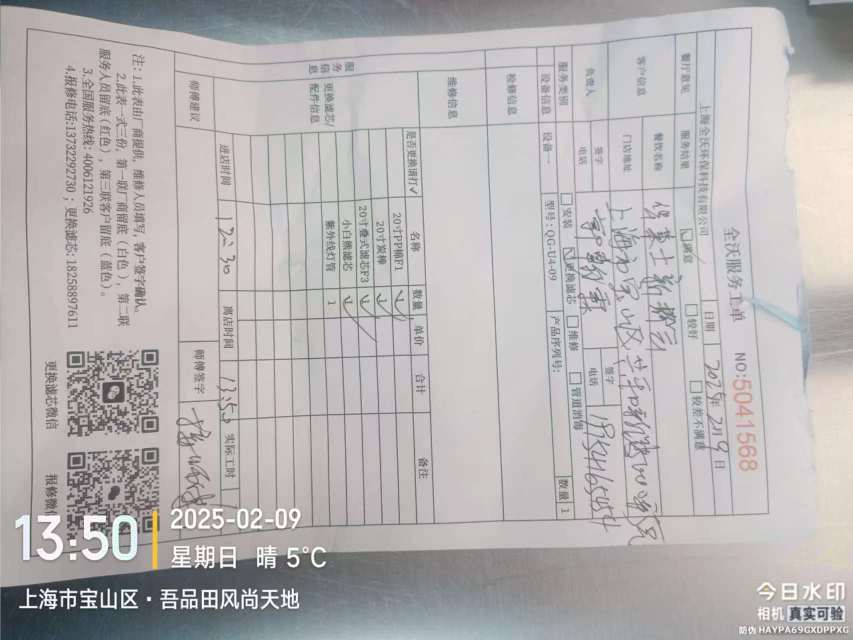 全沃服务工单
NO:5041568
上海全沃环保科技有限公司
日期 2025年2月9日
餐厅意见
服务结果
满意
较好
较差不满意
客户信息
餐饮名称
门店地址
上海市宝山区共和新路
负责人
签字
电话
签字
电话
服务类别
安装
更换滤芯
维修
管道消毒
数量 1
设备信息
设备一
型号: QG-U4-09
产品序列号:
检修信息
维修信息
服务信息
更换滤芯/配件信息
是否更换请打✓
名称
数量
单价
合计
备注
20寸PP棉F1 ✓
20寸炭棒 ✓
20寸叠式滤芯F3 ✓
小白熊滤芯 ✓
紫外线灯管 1
进店时间 12:30
离店时间 13:50
实际工时
师傅建议
师傅签字
注: 1.此表由厂商提供, 维修人员填写, 客户签字确认.
2.此表一式三份, 第一联厂商留底(白色), 第二联
服务人员留底(红色), 第三联客户留底(蓝色)。
3.全国服务热线: 4006121926
4.报修电话:13732292730 ; 更换滤芯: 18258897611
更换滤芯微信
报修微信
13:50
2025-02-09
星期日 晴 5°C
上海市宝山区·吾品田风尚天地
今日水印
相机 真实可验
防伪 HAYPA69GXDPPXG